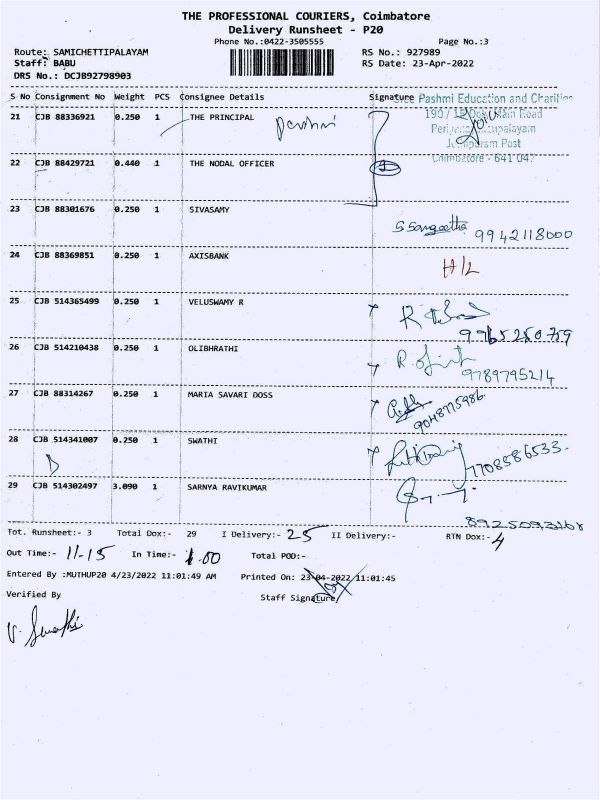 THE PROFESSIONAL COURIERS, Coimbatore
Delivery Runsheet - P20
Phone No.:0422-3505555 Page No.:3
Route: SAMICHETTIPALAYAM RS No.: 927989
Staff: BABU RS Date: 23-Apr-2022
DRS No.: DCJB92798903
S No Consignment No Weight PCS Consignee Details Signature
Pashmi Education and Charities
21 CJB 88336921 0.250 1 THE PRINCIPAL Pashmi
Main Road
Post
Coimbatore - 641 047
22 CJB 88429721 0.440 1 THE NODAL OFFICER
23 CJB 88301676 0.250 1 SIVASAMY
S Sangeetha 9942118000
24 CJB 88369851 0.250 1 AXISBANK H/L
25 CJB 514365499 0.250 1 VELUSWAMY R
9965250759
26 CJB 514210438 0.250 1 OLIBHRATHI
9789795214
27 CJB 88314267 0.250 1 MARIA SAVARI DOSS
28 CJB 514341007 0.250 1 SWATHI
7708586533
29 CJB 514302497 3.090 1 SARNYA RAVIKUMAR
Tot. Runsheet:- 3 Total Dox:- 29 I Delivery:- 25 II Delivery:- RTN Dox:- 4
Out Time:- 11-15 In Time:- 1.00 Total POD:-
Entered By :MUTHUP20 4/23/2022 11:01:49 AM Printed On: 23-04-2022 11:01:45
Verified By Staff Signature